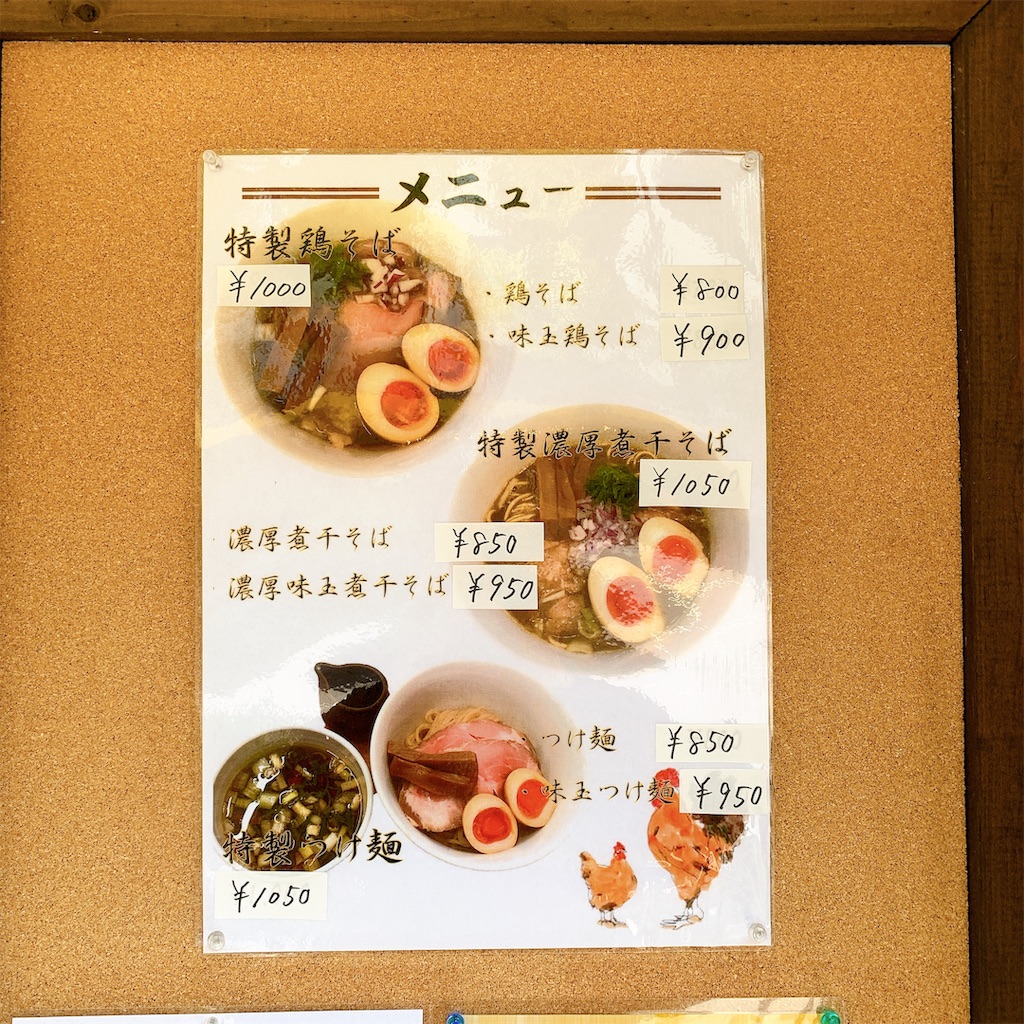 メニュー
特製鶏そば
¥1000
・鶏そば ¥800
・味玉鶏そば ¥900
特製濃厚煮干そば
¥1050
濃厚煮干そば ¥850
濃厚味玉煮干そば ¥950
・つけ麺 ¥850
・味玉つけ麺 ¥950
特製つけ麺
¥1050